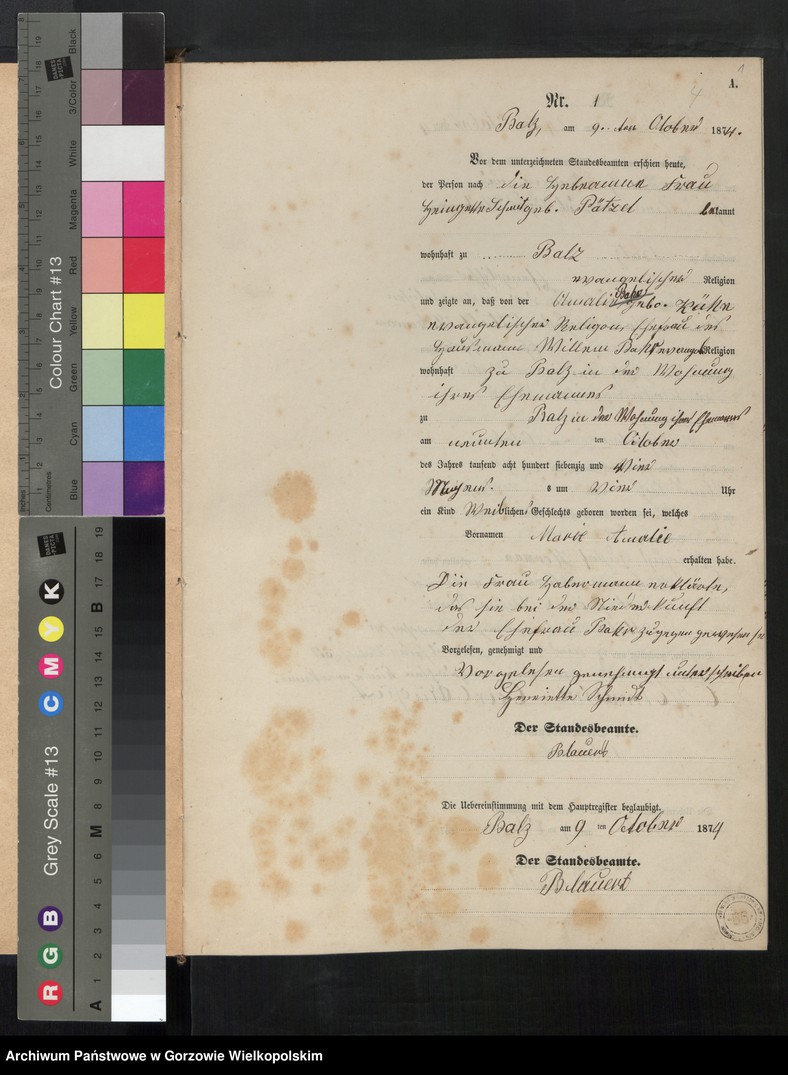 A.
1
4
Nr. 1
Balz, am 9. ten October 1874.
Vor dem unterzeichneten Standesbeamten erschien heute,
der Person nach die Hebeamme Frau
geb. Pätzel bekannt
wohnhaft zu Balz
evangelischer Religion
und zeigte an, daß von der Amalie Bahr gebo.
evangelischer Religon, Ehefrau des
Willem Religion
wohnhaft zu Balz in der Wohnung
ihres Ehemannes
zu Balz in der Wohnung ihres Ehemannes
am neunten ten October
des Jahres tausend acht hundert siebenzig und Vier
Morgens s um Vier Uhr
ein Kind Weiblichen Geschlechts geboren worden sei, welches
Vornamen Marie Amalie
erhalten habe.
Die Frau erklärte,
das sie bei der Niederkunft
der Ehefrau Bahr zugegen gewesen sei
Vorgelesen, genehmigt und
Vorgelesen genehmigt unterschrieben
Henriette Schmidt
Der Standesbeamte.
Blauert
Die Uebereinstimmung mit dem Hauptregister beglaubigt.
Balz am 9 ten October 1874
Der Standesbeamte.
Blauert
Colour Chart #13
Blue Cyan Green Yellow Red Magenta White 3/Color Black
Inches
Centimetres
DANES PICTA
Grey Scale #13
R G B C M Y K
A 1 2 3 4 5 6 M 8 9 10 11 12 13 14 15 B 17 18 19
Archiwum Państwowe w Gorzowie Wielkopolskim